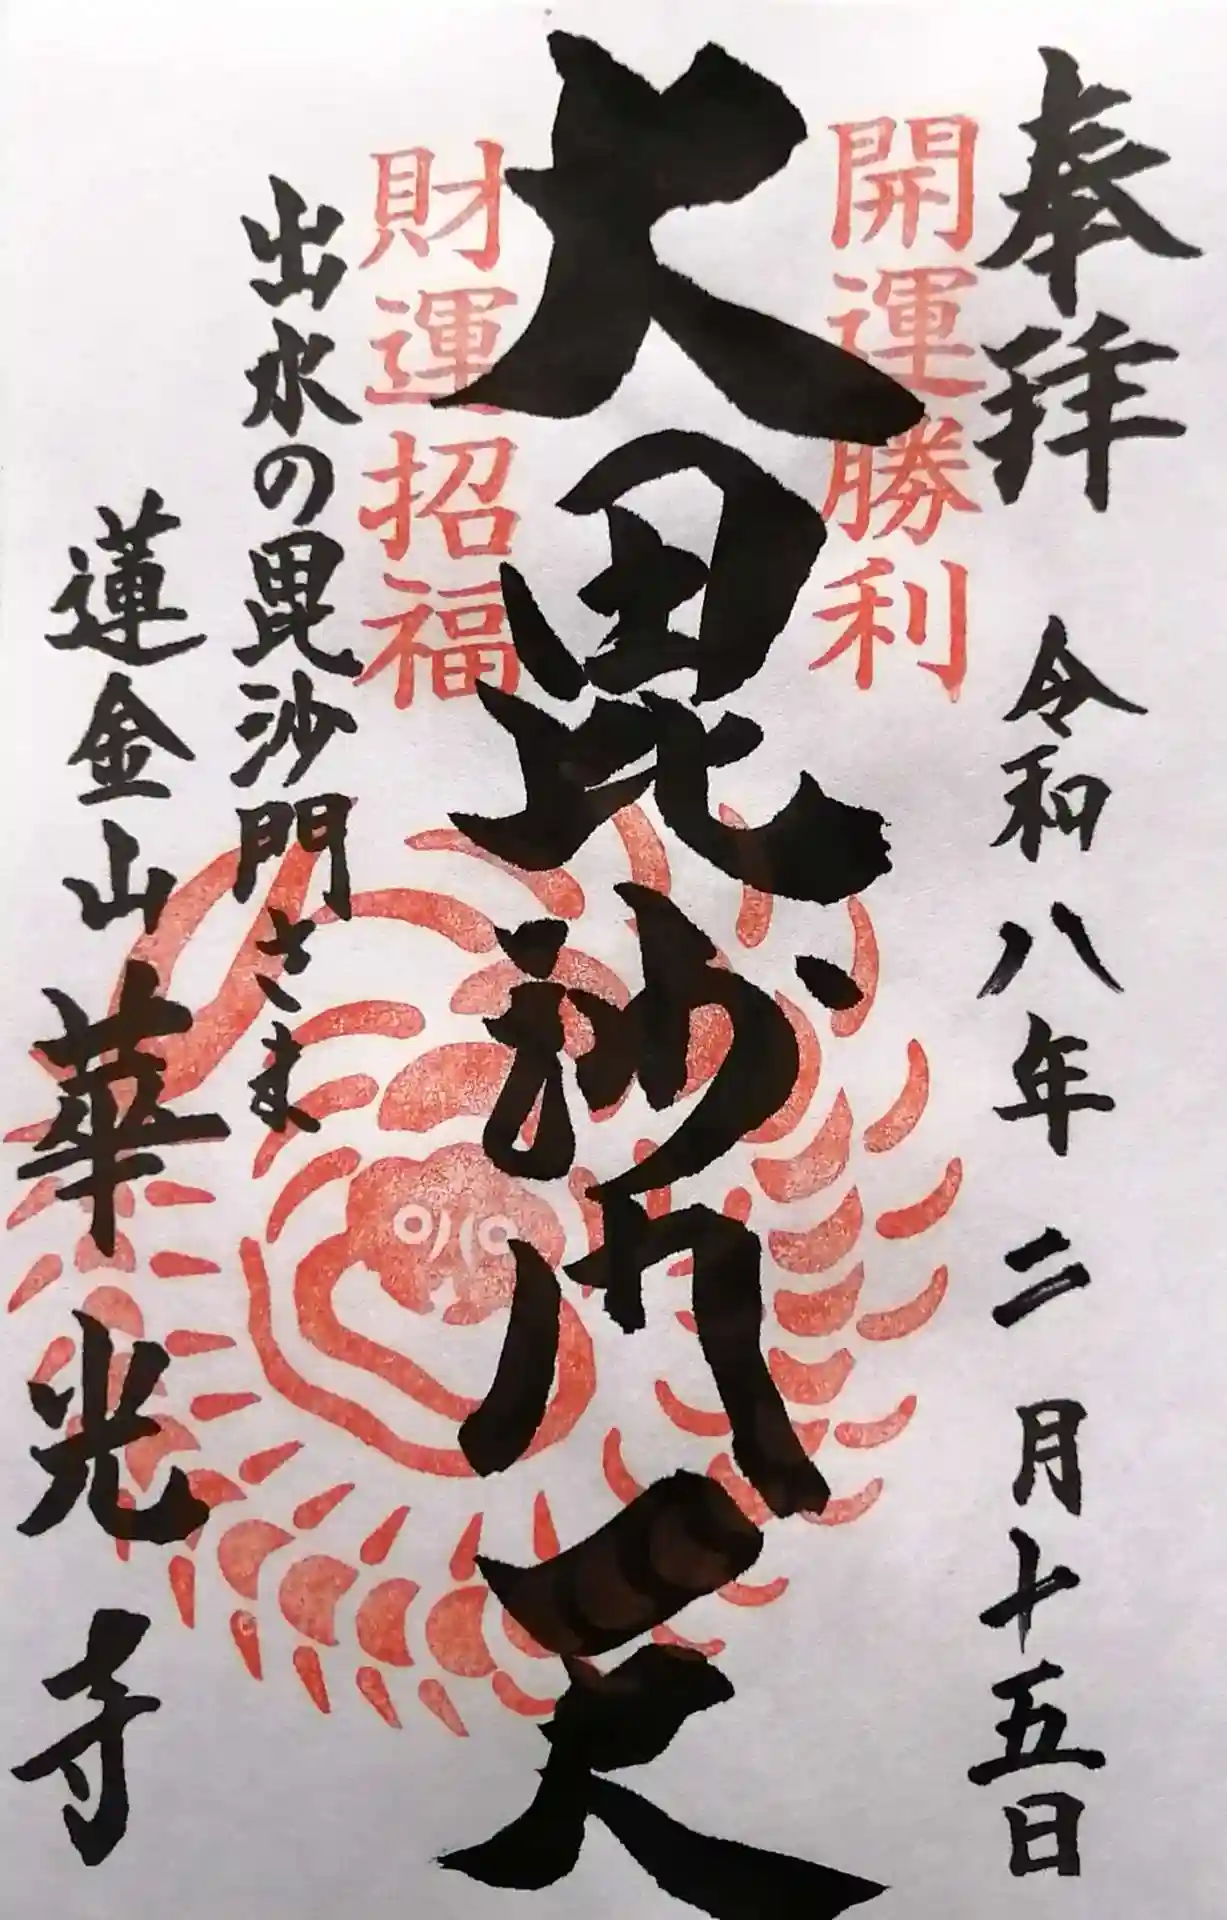 奉拝 令和八年二月十五日
開運勝利
大毘沙門天
財運招福
出水の毘沙門さま
蓮金山 華光寺